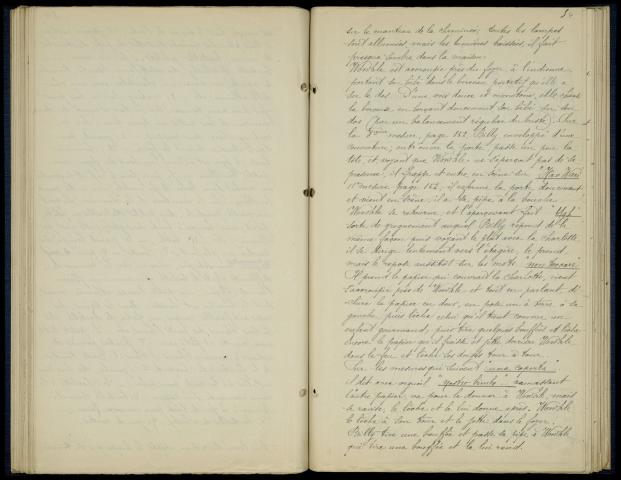 54
sur le manteau de la cheminée; toutes les lampes
sont allumées, mais les lumières baissées, il fait
presque sombre dans la maison.
Wowkle est accroupie près du foyer, à l'indienne
portant son bébé dans le berceau portatif qu'elle a
sur le dos. D'une voix douce et monotone, elle chante
la berceuse en berçant doucement son bébé sur son
dos (par un balancement régulier du buste). Sur
la mesure, page 152, Billy enveloppé d'une
couverture, entr'ouvre la porte, passe un peu la
tête, et voyant que Wowkle ne s'aperçoit pas de sa
présence, il frappe et entre en scène sur "Nao Wari"
1e mesure page 152; il referme la porte, doucement
et vient en scène; il a la pipe à la bouche
Wowkle se retourne, et l'apercevant fait "Ugh"
sorte de grognement auquel Billy répond de la
même façon puis voyant le plat avec la charlotte,
il se dirige lentement vers l'étagère, le prend,
mais le repose aussitôt sur les mots "non toccare"
Il prend le papier qui couvrait la charlotte, vient
s'accroupir près de Wowkle et tout en parlant
déchire le papier en deux, en pose un à terre, à sa
gauche, puis lèche celui qu'il tient comme un
enfant gourmand, puis tire quelques bouffées et lèche
encore le papier qu'il froisse et jette derrière Wowkle
dans le feu et lèche les doigts tour à tour.
Sur les mesures qui suivent "una coperta"
il dit avec orgueil "nostro bimbo" ramassant
l'autre papier, va pour le donner à Wowkle, mais
se ravise, le lèche et le lui donne après. Wowkle
le lèche à son tour et le jette dans le foyer.
Billy tire une bouffée et passe sa pipe à Wowkle
qui tire une bouffée et la lui rend.